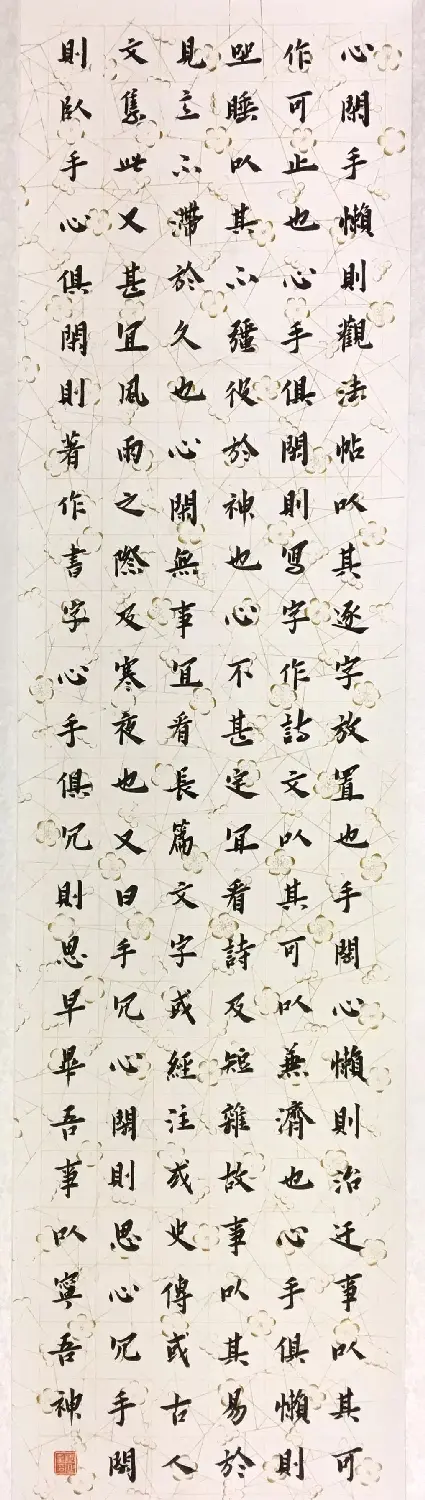 心閑手懶則觀法帖以其逐字放置也手閑心懶則治迂事以其可
作可止也心手俱閑則写字作詩文以其可以兼濟也心手俱懶則
坐睡以其不彊役於神也心不甚定宜看詩及短雜故事以其易於
見意不滯於久也心閑無事宜看長篇文字或經注或史傳或古人
文集此又甚宜風雨之際及寒夜也又曰手冗心閑則思心冗手閑
則臥手心俱閑則著作書字心手俱冗則思早畢吾事以寧吾神